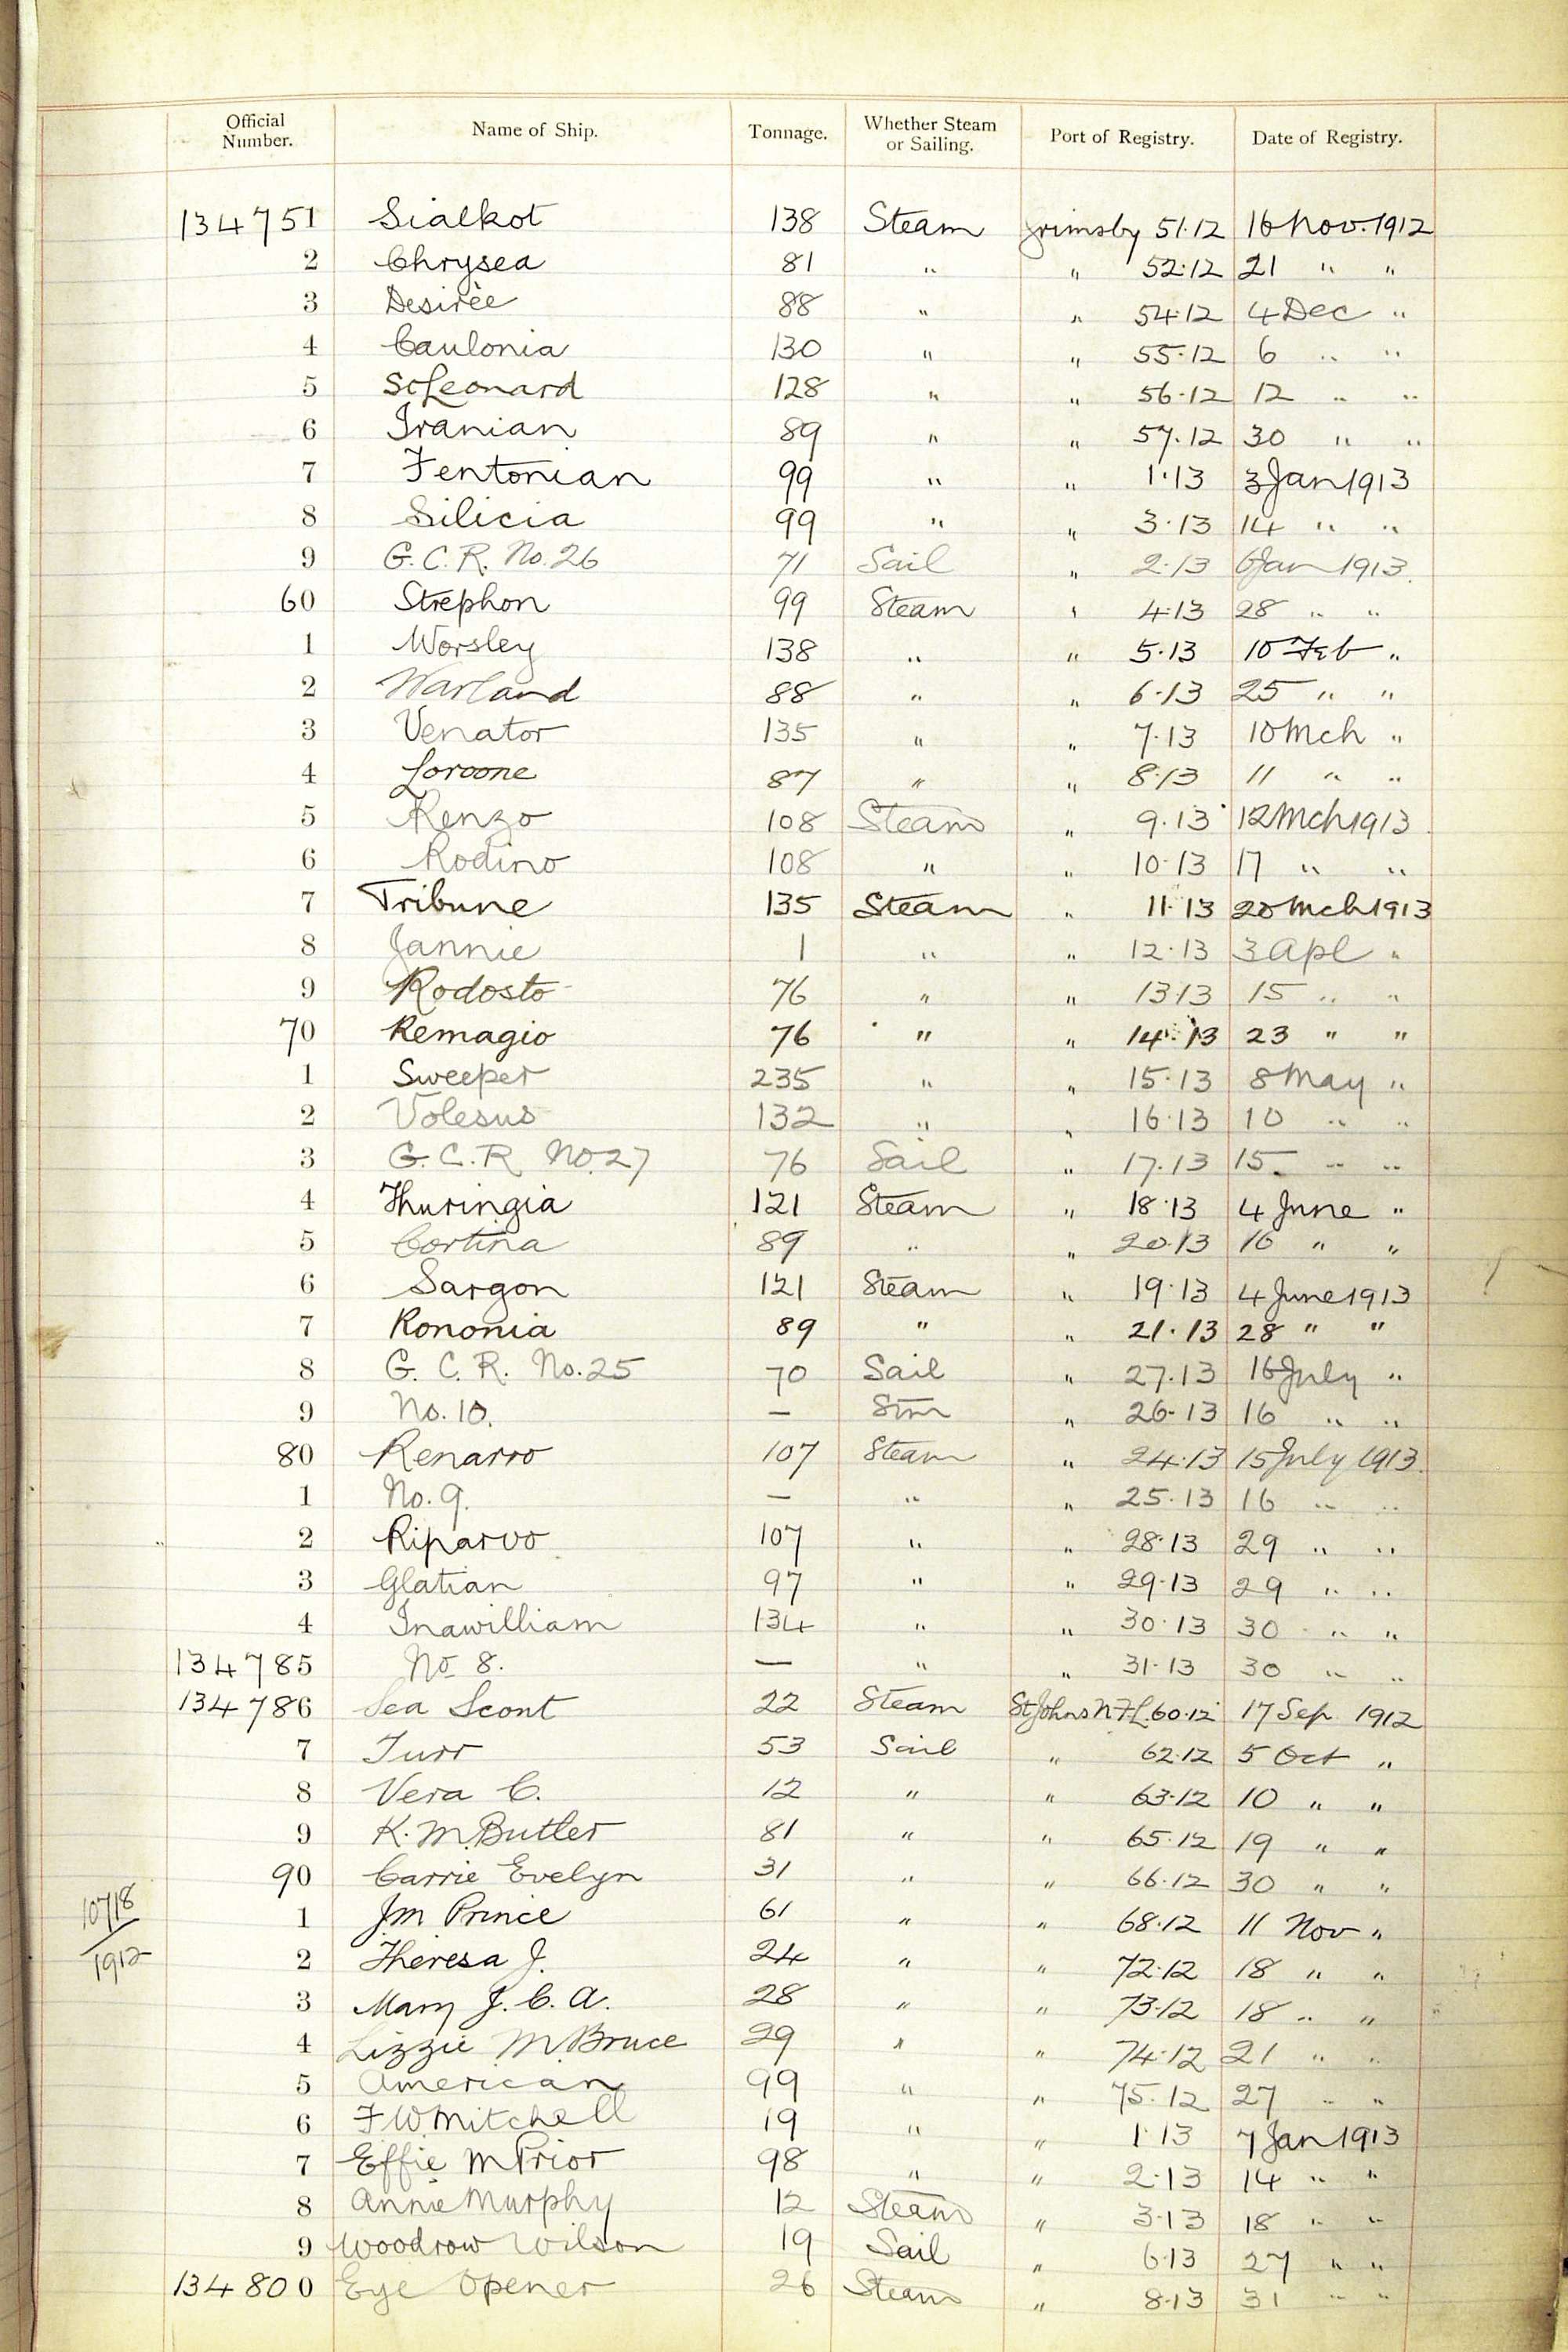 Official Number. Name of Ship. Tonnage. Whether Steam or Sailing. Port of Registry. Date of Registry.
134751 Sialkot 138 Steam Grimsby 51.12 16 Nov. 1912
2 Chrysea 81 " " 52.12 21 " "
3 Desirèe 88 " " 54.12 4 Dec "
4 Caulonia 130 " " 55.12 6 " "
5 St Leonard 128 " " 56.12 12 " "
6 Iranian 89 " " 57.12 30 " "
7 Fentonian 99 " " 1.13 3 Jan 1913
8 Silicia 99 " " 3.13 14 " "
9 G.C.R. No. 26 71 Sail " 2.13 6 Jan 1913.
60 Strephon 99 Steam " 4.13 28 " "
1 Worsley 138 " " 5.13 10 Feb "
2 Warland 88 " " 6.13 25 " "
3 Venator 135 " " 7.13 10 Mch "
4 Loroone 87 " " 8.13 11 " "
5 Renzo 108 Steam " 9.13 12 Mch 1913
6 Rodino 108 " " 10.13 17 " "
7 Tribune 135 Steam " 11.13 20 Mch 1913
8 Jannie 1 " " 12.13 3 Apl "
9 Rodosto 76 " " 13.13 15 " "
70 Remagio 76 " " 14.13 23 " "
1 Sweeper 235 " " 15.13 8 May "
2 Volesus 132 " " 16.13 10 " "
3 G.C.R No. 27 76 Sail " 17.13 15 " "
4 Thuringia 121 Steam " 18.13 4 June "
5 Cortina 89 " " 20.13 16 " "
6 Sargon 121 Steam " 19.13 4 June 1913
7 Rononia 89 " " 21.13 28 " "
8 G. C. R. No. 25 70 Sail " 27.13 16 July "
9 No. 10. — Stm " 26.13 16 " "
80 Renarro 107 Steam " 24.13 15 July 1913.
1 No. 9. — " " 25.13 16 " "
2 Riparvo 107 " " 28.13 29 " "
3 Glatian 97 " " 29.13 29 " "
4 Inawilliam 134 " " 30.13 30 " "
134785 No 8. — " " 31.13 30 " "
134786 Sea Scout 22 Steam St Johns NFL 60.12 17 Sep 1912
7 Turr 53 Sail " 62.12 5 Oct "
8 Vera C. 12 " " 63.12 10 " "
9 K. M. Butler 81 " " 65.12 19 " "
90 Carrie Evelyn 31 " " 66.12 30 " "
10718
1912
1 J M Prince 61 " " 68.12 11 Nov "
2 Theresa J. 24 " " 72.12 18 " "
3 Mary J. C. A. 28 " " 73.12 18 " "
4 Lizzie M. Bruce 29 " " 74.12 21 " "
5 American 99 " " 75.12 27 " "
6 F W. Mitchell 19 " " 1.13 7 Jan 1913
7 Effie M Prior 98 " " 2.13 14 " "
8 Annie Murphy 12 Steam " 3.13 18 " "
9 Woodrow Wilson 19 Sail " 6.13 27 " "
134800 Eye Opener 26 Steam " 8.13 31 " "